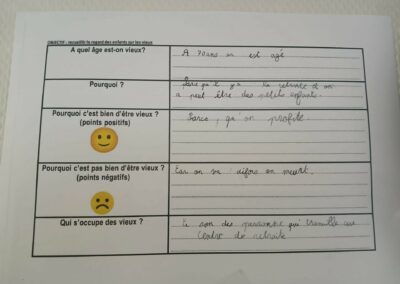 OBJECTIF : recueillir le regard des enfants sur les vieux
A quel âge est-on vieux?
A 70 ans on est agé
Pourquoi ?
Parce qu'il y a la retraite et on
a peut être des petits enfants.
Pourquoi c'est bien d'être vieux ?
(points positifs)
Parce, qu'on profite.
Pourquoi c'est pas bien d'être vieux ?
(points négatifs)
Car on va on meurt.
Qui s'occupe des vieux ?
son des personne qui travaille
Centre de retraite